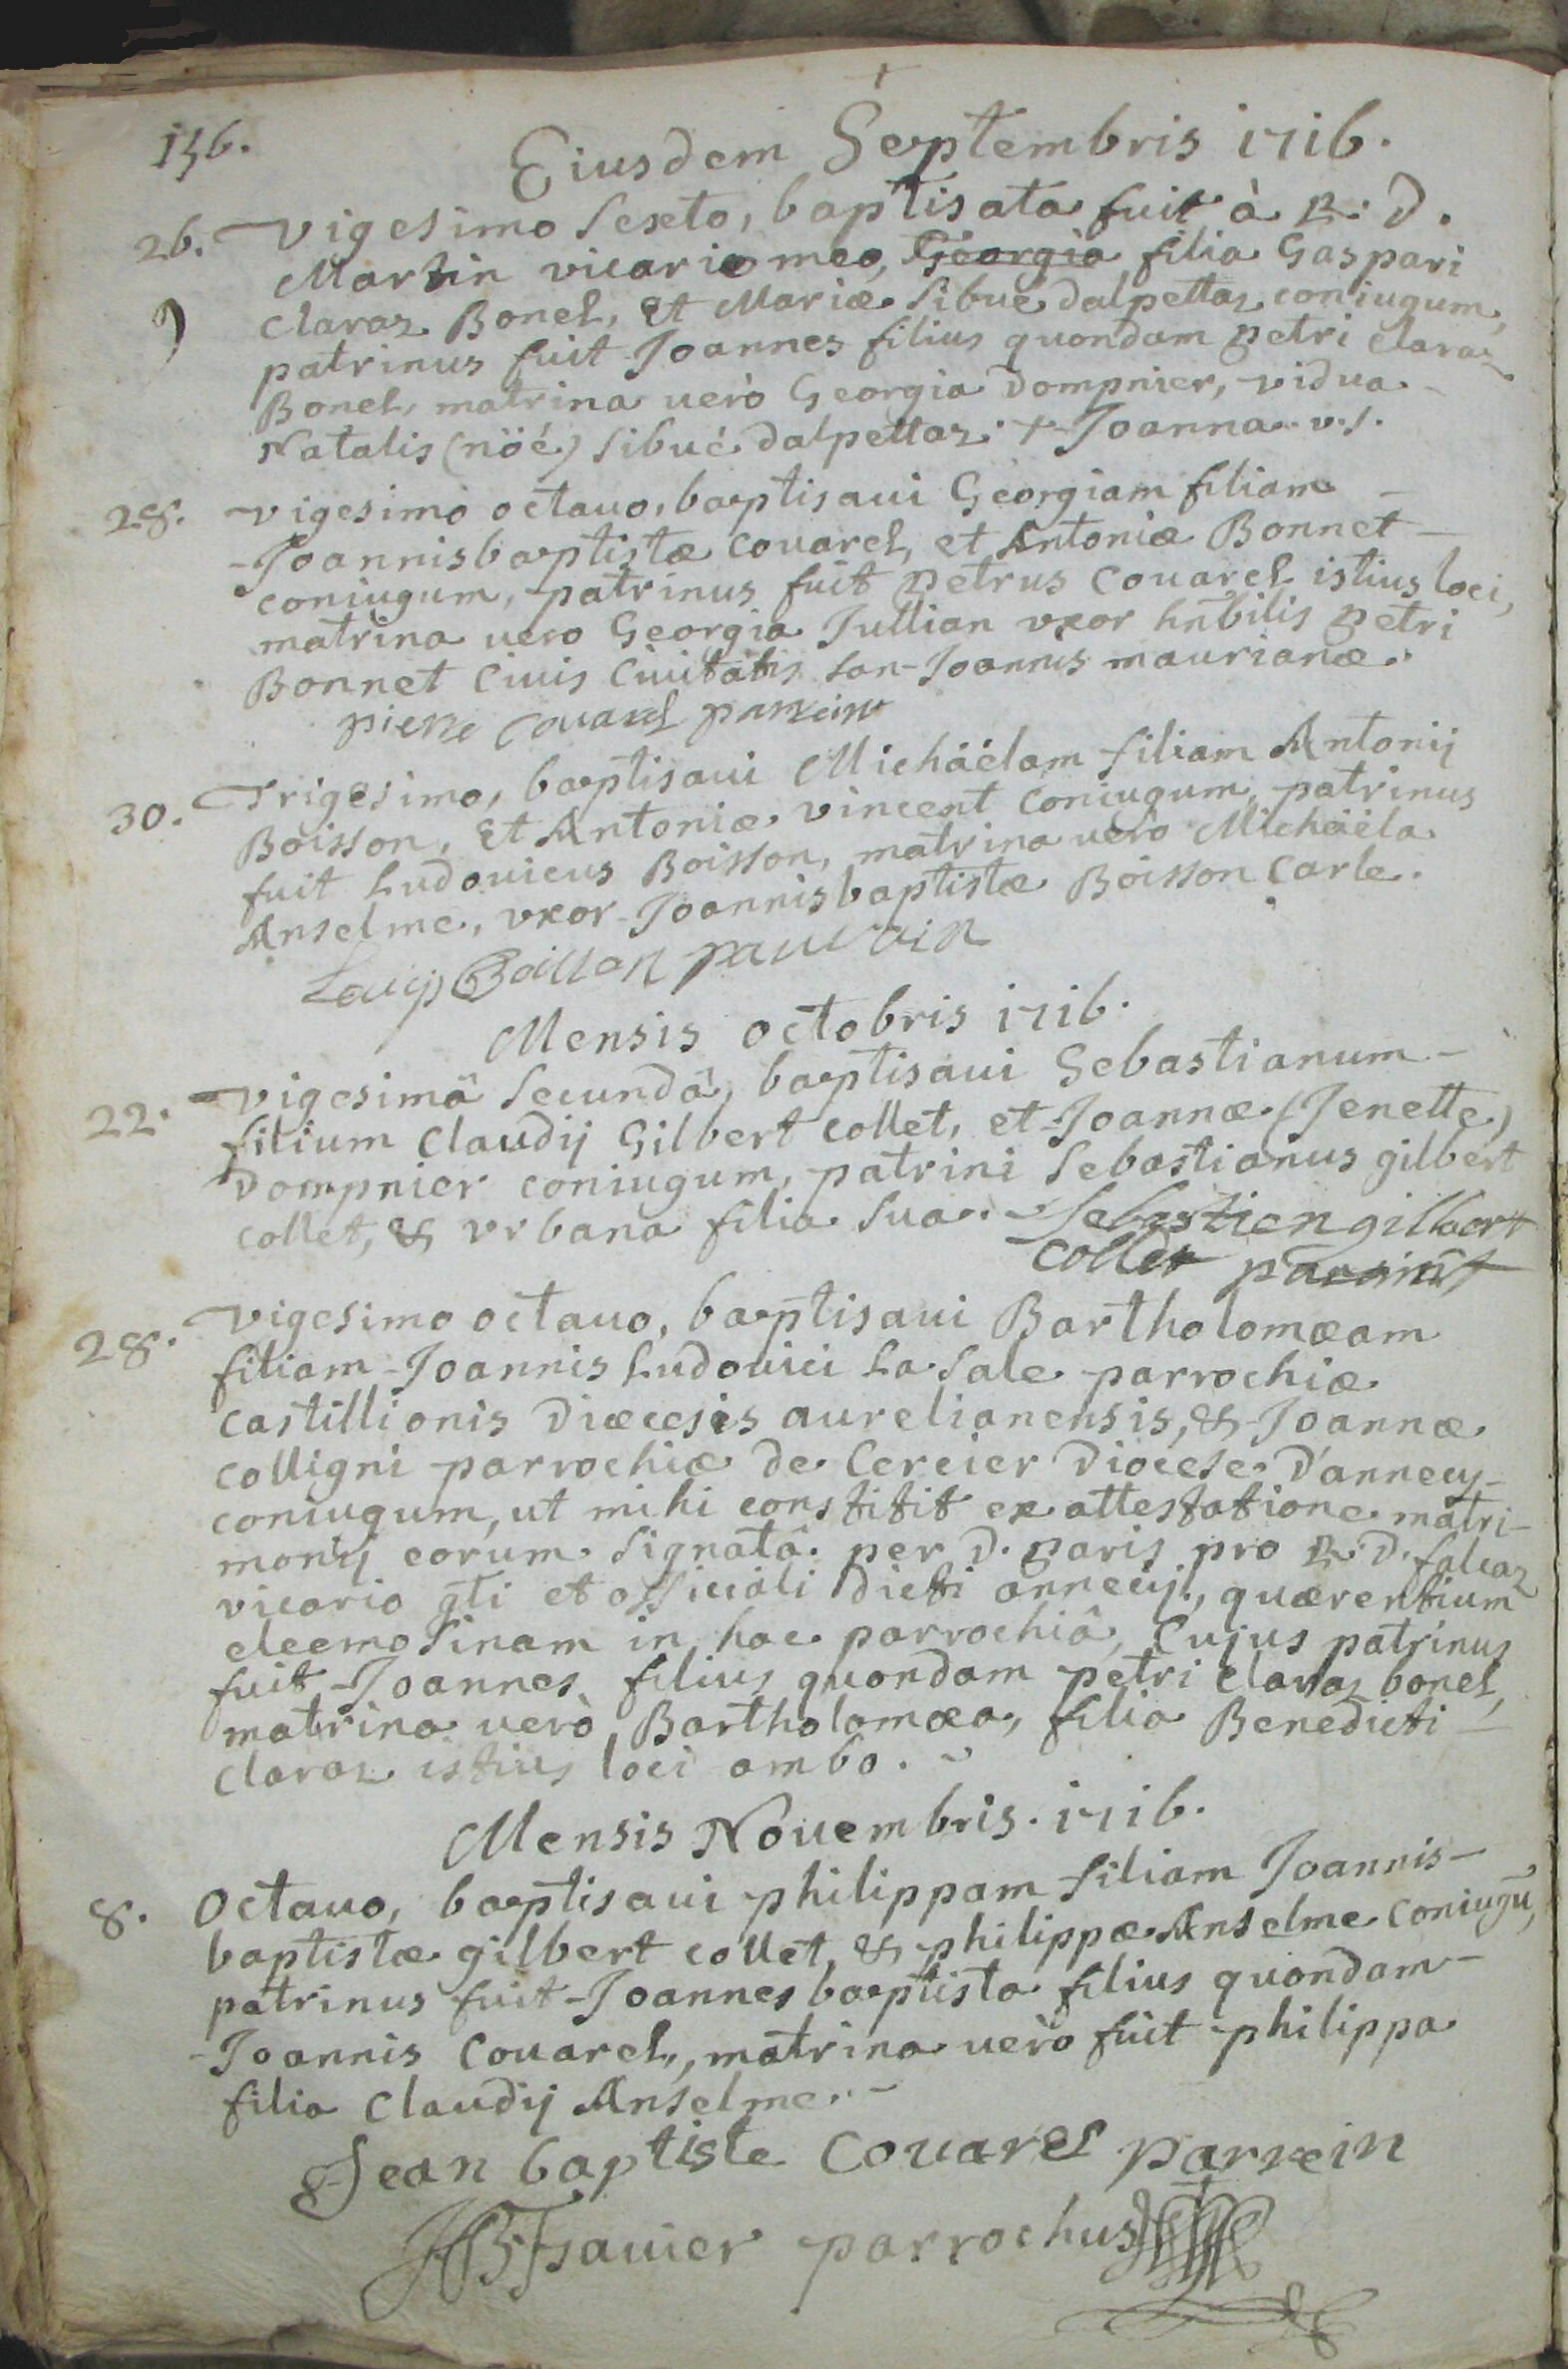 156.
Eiusdem Septembris 1716.
26. Vigesimo sexto, baptisata fuit à R. D.
Martin vicario meo, Georgia filia Gaspari
Claraz Bonel, Et Mariæ Sibué dalpettaz coniugum,
patrinus fuit Joannes filius quondam petri Claraz
Bonel, matrina uerò Georgia Dompnier, vidua
Natalis (nöé) Sibué dalpettaz. + Joanna v.s.
28. Vigesimo octauo, baptisaui Georgiam filiam
Joannisbaptistæ Couarel, et Antoniæ Bonnet
coniugum, patrinus fuit petrus Couarel istius loci,
matrina uero Georgia Jullian vxor hñbilis petri
Bonnet Ciuis Ciuitatis San-Joannis maurianæ.
pierre Couarel parrein
30. Trigesimo, baptisaui Michäélam filiam Antonij
Boisson, Et Antoniæ vincent Coniugum, patrinus
fuit Ludouicus Boisson, matrina uerò Michäéla
Anselme, vxor Joannisbaptistæ Boisson Carle.
Louis Boisson
Mensis octobris 1716.
22. Vigesimâ Secundâ, baptisaui Sebastianum
filium Claudij Gilbert collet, et Joannæ (Jenette)
Dompnier coniugum, patrini Sebastianus gilbert
collet, & vrbana filia sua. Sebastien gillbert
collet
28. Vigesimo octauo, baptisaui Bartholomæam
filiam Joannis Ludouici La Sale parrochiæ
Castillionis Diæcesis aurelianensis, & Joannæ
Colligni parrochiæ de Cercier Diocese D'annecy
coniugum, ut mihi constitit ex attestatione matri-
monij eorum signatâ per D. paris pro R. D. falcaz
vicario gli et officiali dicti annecij, quærentium
eleemosinam in hac parrochiâ, Cujus patrinus
fuit Joannes filius quondam petri Claraz bonel,
matrina uerò Bartholomæa, filia Benedicti
Claraz istius loci ambo.
Mensis Nouembris. 1716.
8. Octauo, baptisaui philippam filiam Joannis-
baptistæ gilbert collet, & philippæ Anselme Coniugũ,
patrinus fuit Joannes baptista filius quondam
Joannis Couarel, matrina uerò fuit philippa
filia Claudij Anselme.
Jean baptiste Couarel parrein
parrochus